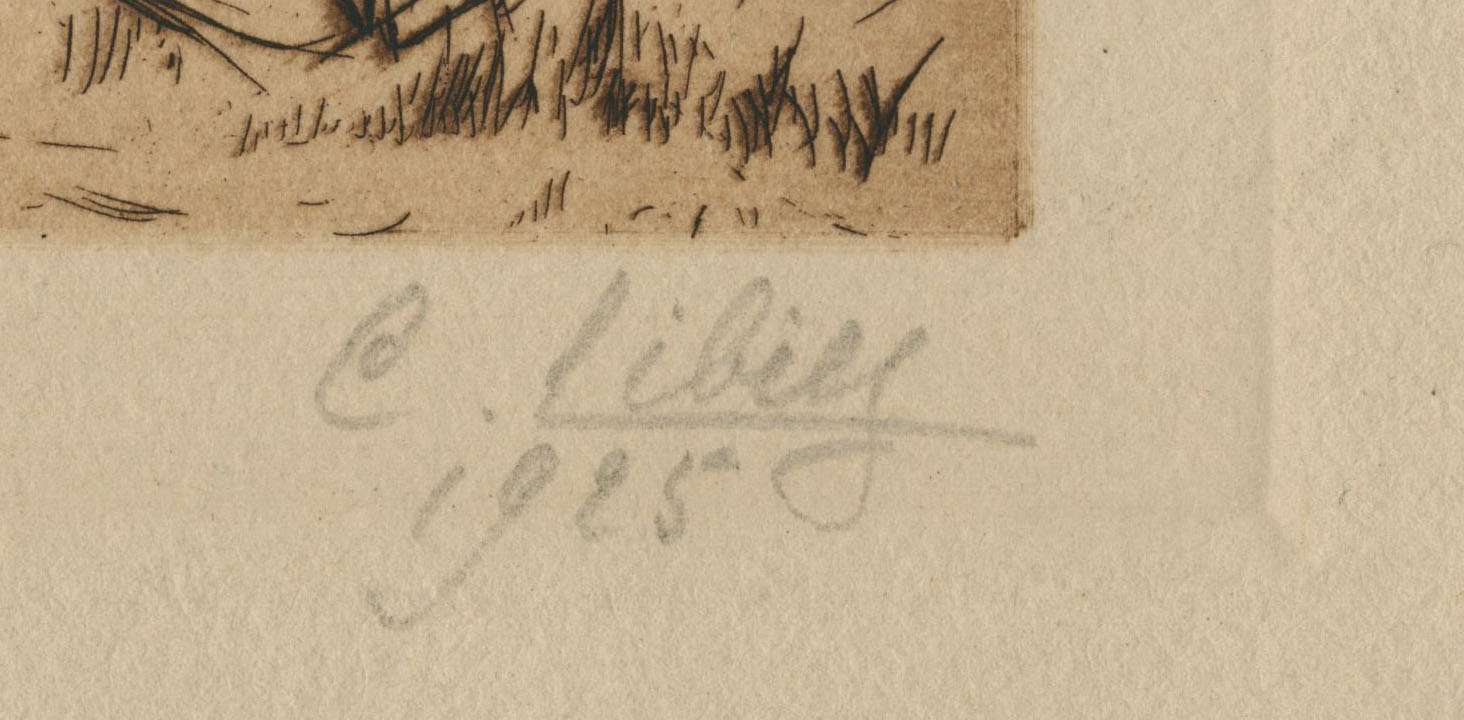 C. Libiez
1925